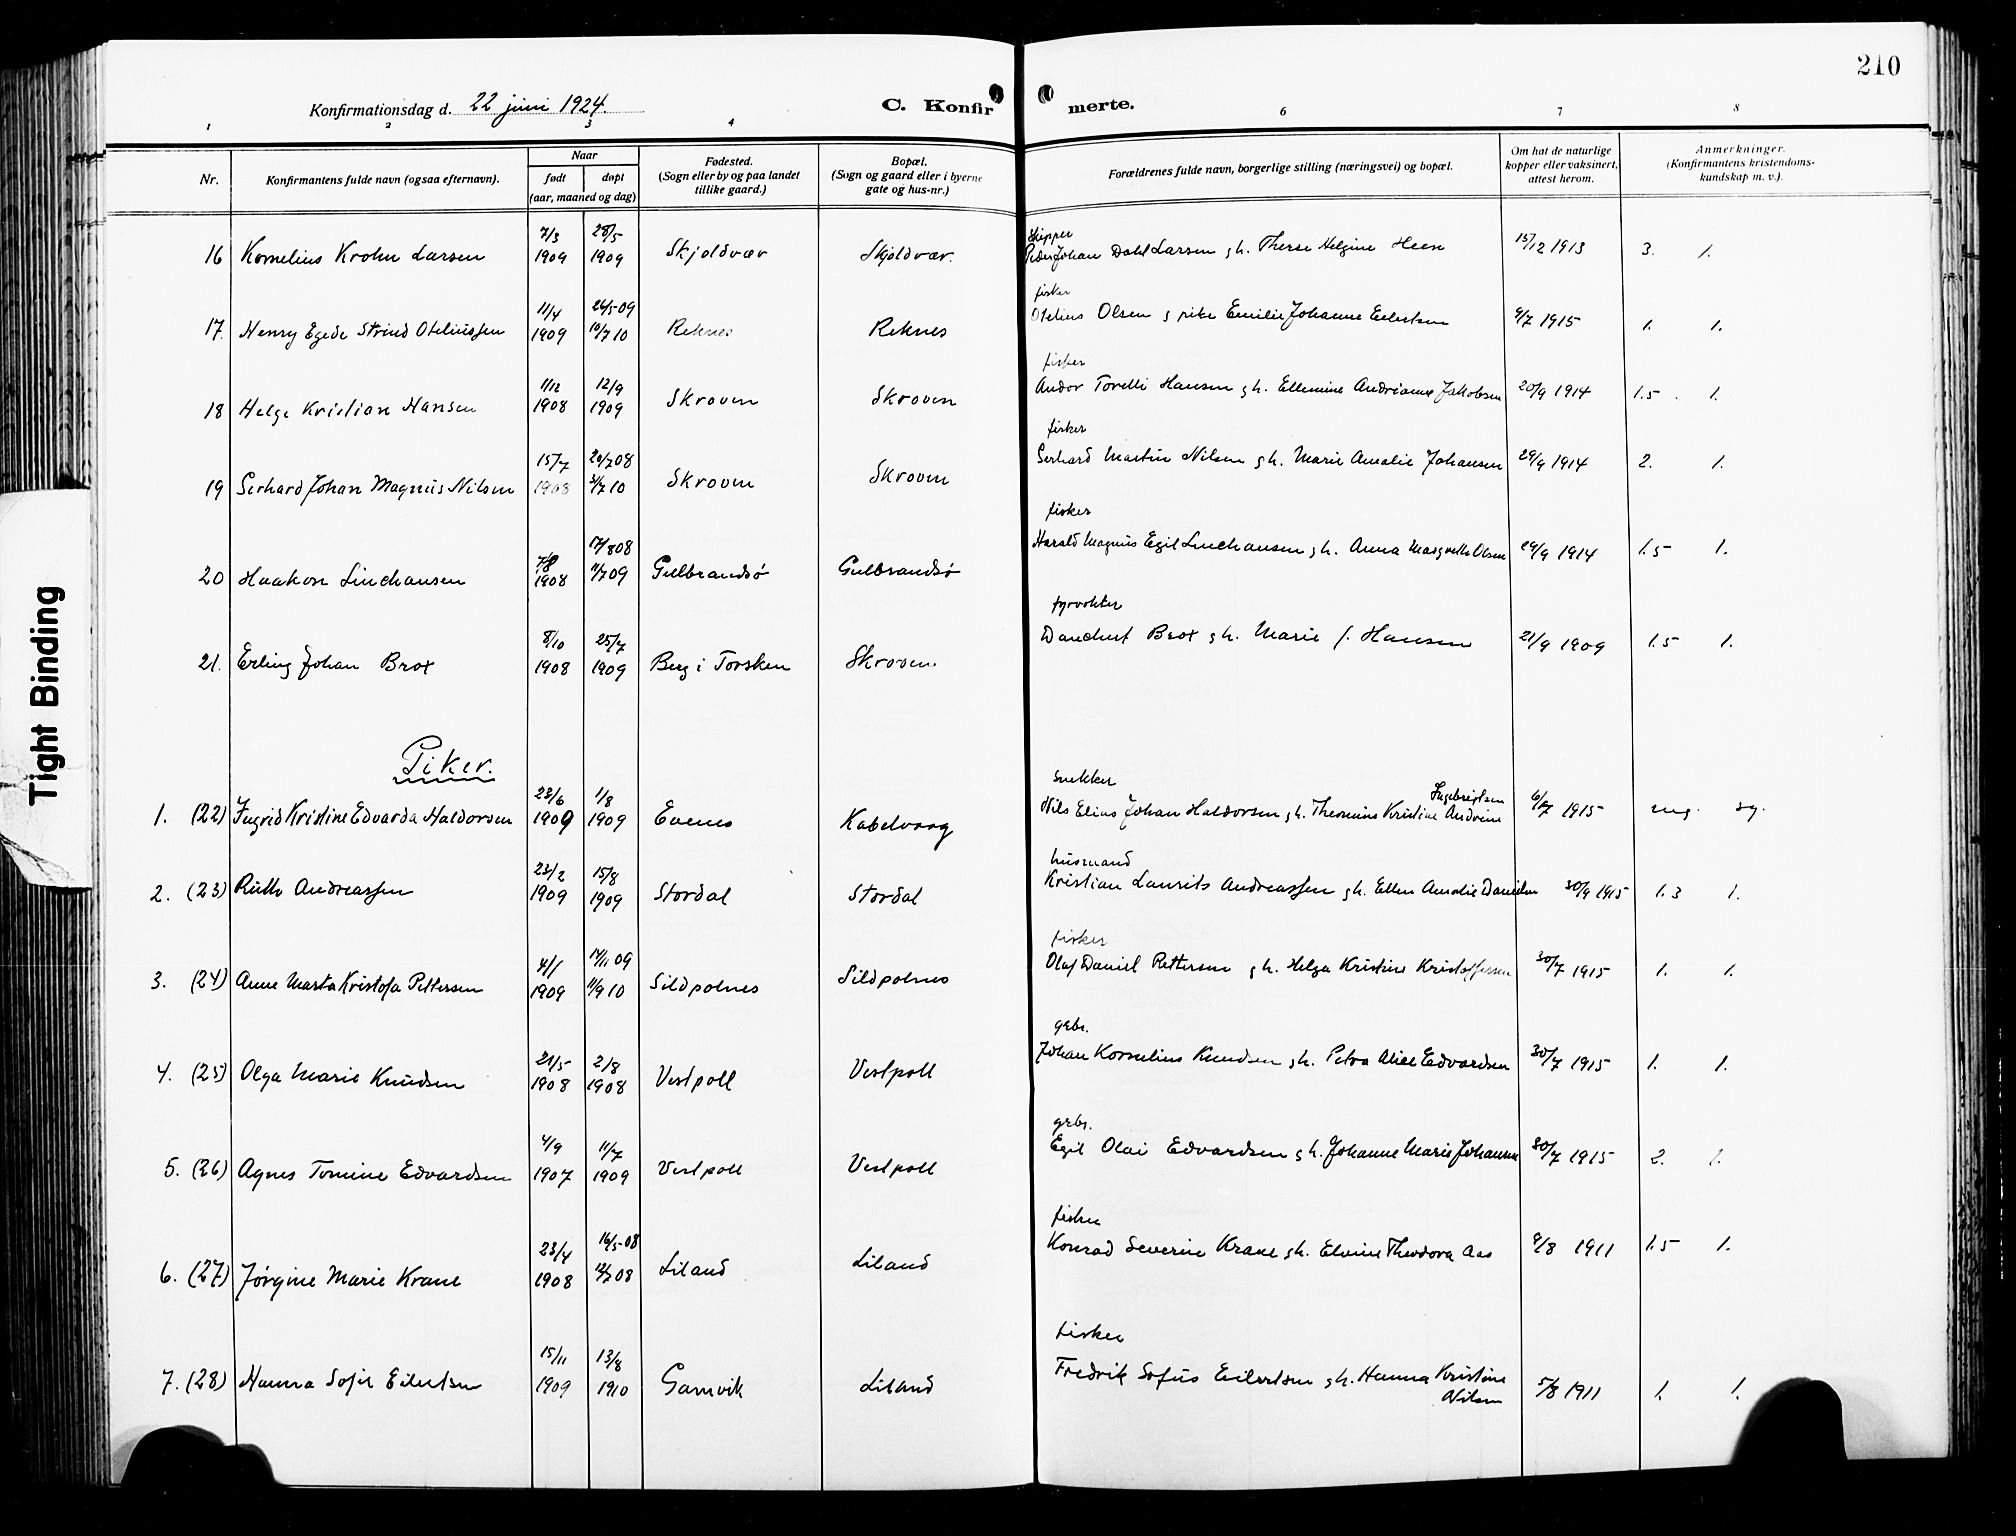 210
Konfirmationsdag d. 22 juni 1924.
C. Konfirmerte.
1 2 3 4 6 7 8
Nr.
Konfirmantens fulde navn (ogsaa efternavn).
Naar
født
døpt
(aar, maaned og dag)
Fødested.
(Sogn eller by og paa landet
tillike gaard.)
Bopæl.
(Sogn og gaard eller i byerne
gate og hus-nr.)
Forældrenes fulde navn, borgerlige stilling (næringsvei) og bopæl.
Om hat de naturlige
kopper eller vaksinert,
attest herom.
Anmerkninger.
(Konfirmantens kristendoms-
kundskap m. v.).
7/3 28/5 Skipper
16 Kornelius Krohn Larsen 1909 1909 Skjoldvær Skjoldvær. Peder Johan Dahl Larsen g h. Therese Helgine Heen 15/12 1913 3. 1.
11/4 26/5-09 fisker
17. Henry Egede Strind Oteliussen 1909 10/7 10 Reknes Reknes Otelius Olsen g pike Emilie Johanne Eilertsen 9/7 1915 1. 1.
1/12 12/9 fisker
18 Helge Kristian Hansen 1908 1909 Skroven Skroven Andor Torelli Hansen g h. Ellemine Andrianne Jakobsen 20/9 1914 1.5 1.
15/7 20/7 08 fisker
19 Gerhard Johan Magnus Nilsen 1908 3/7 10 Skroven Skroven Gerhard Martin Nilsen g h. Marie Amalie Johansen 29/9 1914 2. 1.
7/8 17/8 08 fisker
20 Haakon Lindhausen 1908 11/7 09 Gulbrandsø Gulbrandsø Harald Magnus Egil Lindhausen g h. Anna Margrethe Olsen 29/9 1914 1.5 1.
8/10 25/7 fyrvokter
21. Erling Johan Brox 1908 1909 Berg i Torsken Skroven. Danchert Brox g h. Marie f. Hansen 21/9 1909 1.5 1.
Piker.
23/6 1/8 snekker Ingebrigtsen
1. (22) Ingrid Kristine Edvarda Haldorsen 1909 1909 Evenes Kabelvaag Nils Elias Johan Haldorsen g h. Kristine Andrine 6/7 1915 mg. sg.
23/2 15/8 husmand
2. (23) Ruth Andreassen 1909 1909 Stordal Stordal Kristian Laurits Andreassen g h. Ellen Amalie Danielsen 30/9 1915 1.3 1.
4/1 14/11 09 fisker
3. (24) Anne Marta Kristofa Pettersen 1909 11/9 10 Sildpolnes Sildpolnes Olaf Daniel Pettersen g h. Helga Kristine Kristoffersen 30/7 1915 1. 1.
21/5 2/8 gbr.
4. (25) Olga Marie Knudsen 1908 1908 Vestpoll Vestpoll Johan Kornelius Knudsen g h. Petra Alice Edvardsen 30/7 1915 1. 1.
4/9 11/7 gbr.
5. (26) Agnes Tomine Edvardsen 1907 1909 Vestpoll Vestpoll Egil Olai Edvardsen g h. Johanne Marie Johansen 30/7 1915 2. 1.
23/4 16/5-08 fisker
6. (27) Jørgine Marie Krane 1908 12/7 08 Liland Liland Konrad Severin Krane g h. Elvine Theodora Aas 9/8 1911 1.5 1.
15/11 13/8 fisker
7. (28) Hanna Sofie Eilertsen 1909 1910 Gamvik Liland Fredrik Sofus Eilertsen g h. Hanna Kristine 5/8 1911 1. 1.
Nilsen
Tight Binding